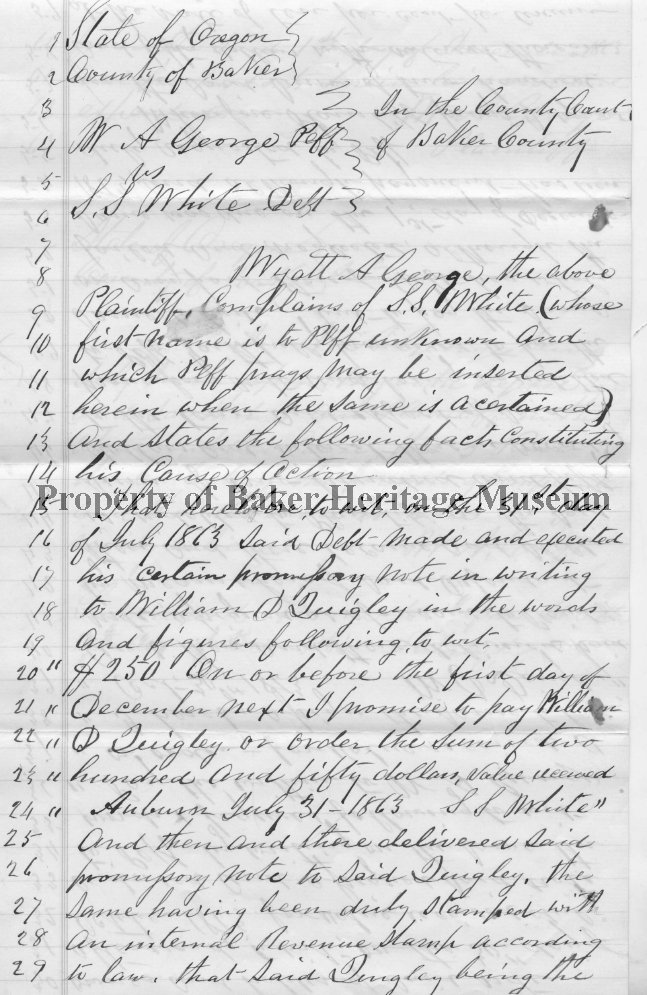 1 State of Oregon
2 County of Baker
3 In the County Court
4 W A George Plff of Baker County
5 vs
6 S. S White Deft
7
8 Wyatt A George, the above
9 Plaintiff, Complains of S. S. White (whose
10 first name is to Plff unknown and
11 which Plff prays may be inserted
12 herein when the same is acertained)
13 And States the following facts Constituting
14 his Cause of action
Property of Baker Heritage Museum
15 That heretofore to wit, on the 31st day
16 of July 1863 said Deft made and executed
17 his certain promissory note in writing
18 to William D Quigley in the words
19 and figures following to wit,
20 " $250 On or before the first day of
21 " December next I promise to pay William
22 " D Quigley or order the sum of two
23 " hundred and fifty dollars, value received
24 " Auburn July 31 - 1863 S S White "
25 And then and there delivered said
26 promissory note to said Quigley, the
27 same having been duly stamped with
28 an internal Revenue Stamp according
29 to law, that said Quigley being the